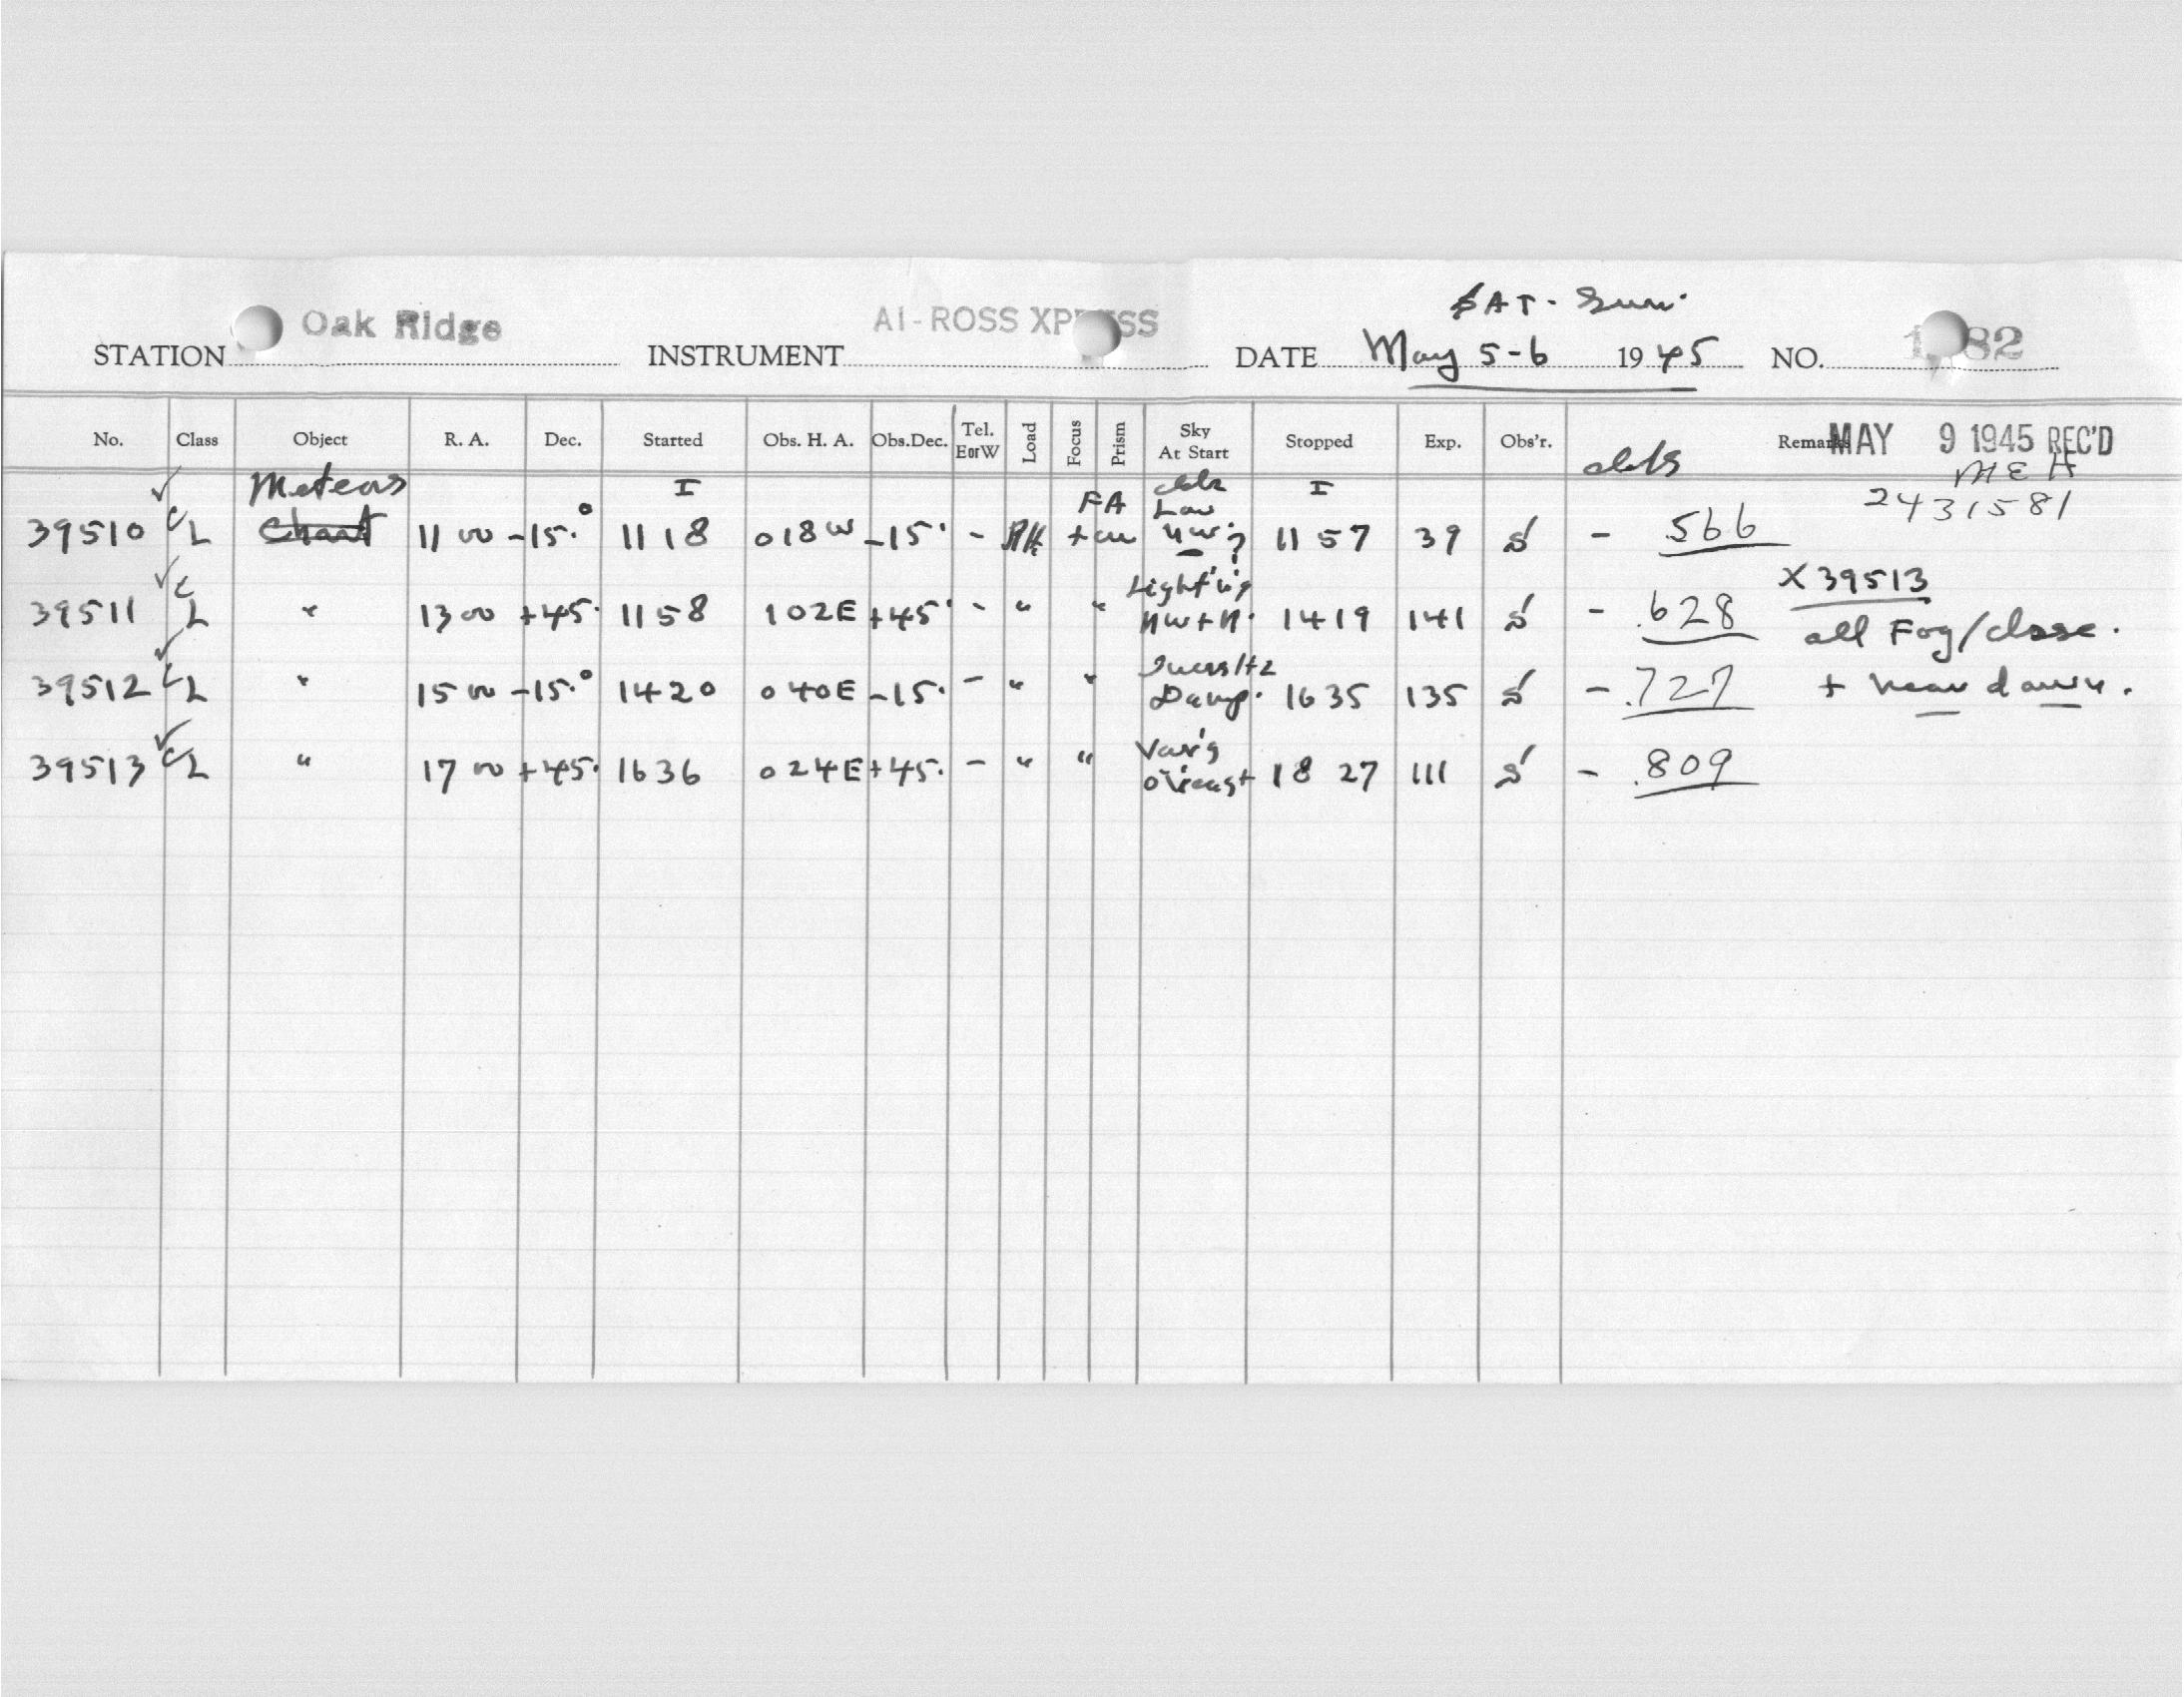 SAT - Sun.
STATION Oak Ridge INSTRUMENT AI-ROSS XP SS DATE May 5-6 1945 NO. 1 82
No. Class Object R. A. Dec. Started Obs. H. A. Obs.Dec. Tel. EorW Load Focus Prism Sky At Start Stopped Exp. Obs'r. Remarks MAY 9 1945 REC'D
MEH
Meteors I FA Low I 2431581
39510 C L Chart 11 00 -15.° 11 18 018W -15° - + cm NW? 11 57 39 S - .566
X 39513
39511 C L " 13 00 +45. 11 58 102E +45° - " " Light'g NW + N. 1419 141 S - .628 all Fog/close.
39512 C L " 15 00 -15.° 1420 040E -15. - " " Damp. 1635 135 S - .727 + near dawn.
39513 C L " 17 00 +45. 1636 024E +45. - " " Var'g o'vcast 18 27 111 S - .809